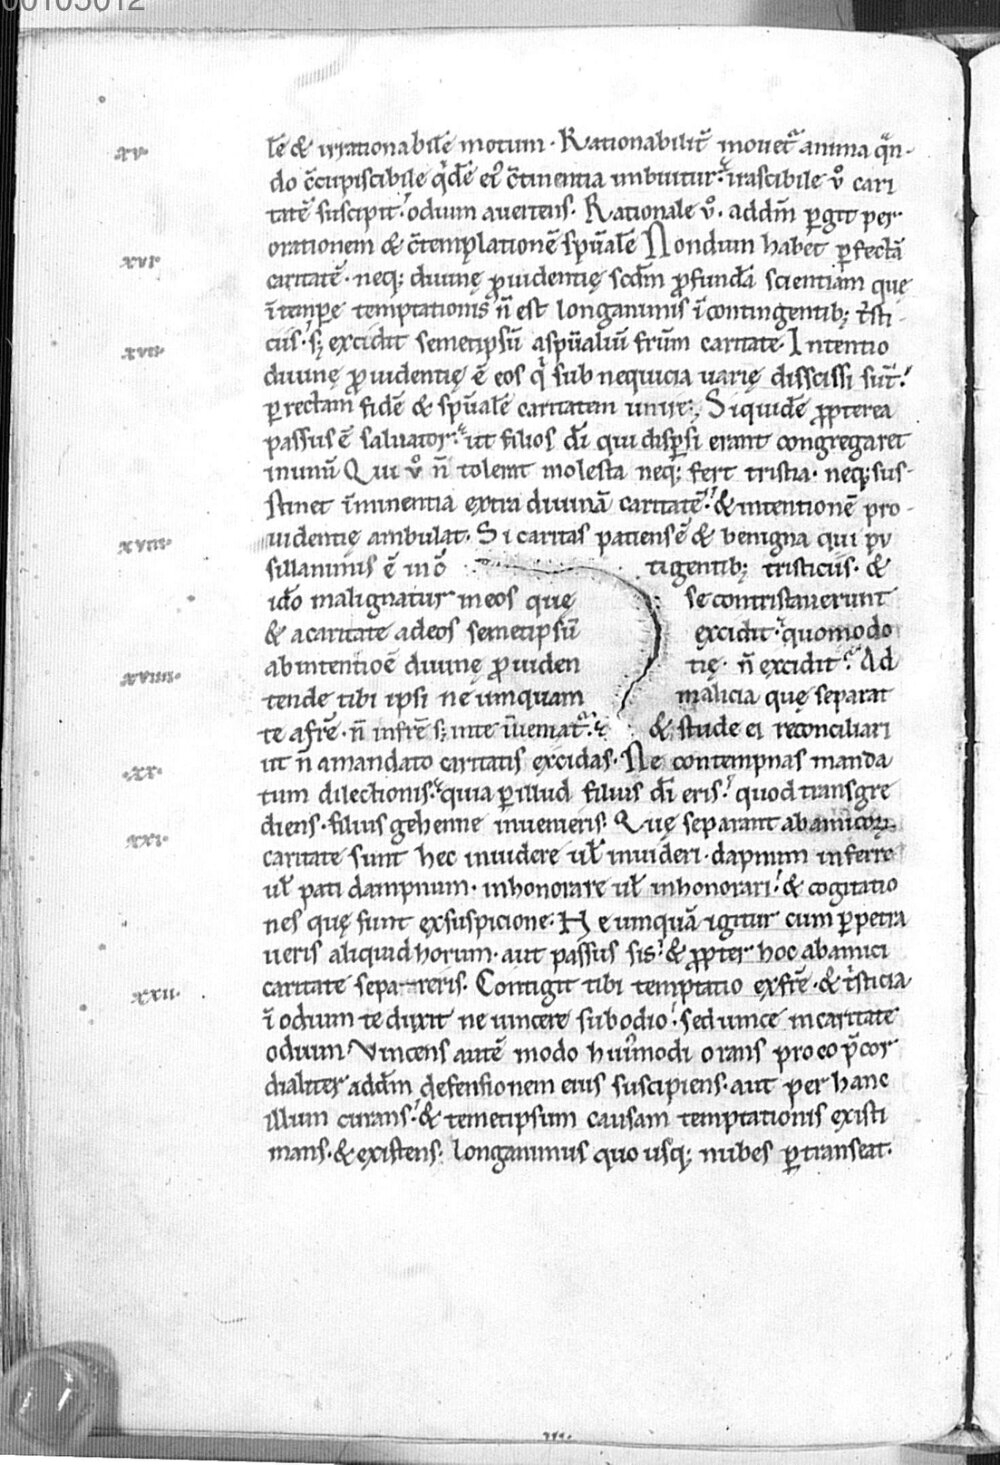 00105012
xv· lē & irrationabilē motum · Rationabilit̄ mouet᷑ anima qᷓn-
do c̄cupiscibile qͥdē eiꝰ c̄tinentia imbuitur· irascibile v̊ cari
tatē suscipit· odium auertens· Rationale v̊· addm̄ ꝑgit per·
orationem & c̄templationē sp̄ualē Nondum habet ꝑfectā
xvi· caritatē· neq; diuinę ꝓuidentię scdm̄ ꝓfundā scientiam que
ī tempe temptationis n̄ est longanimis ī contingentib; tͥsti-
xvii· ciis· s; excidit semetipsū a sp̄ualiū fr̄um caritate· Intentio
diuinę ꝓuidentię ē eos qͥ sub nequicia uarię disscissi sūt·
ꝑ rectam fidē & sp̄ualē caritatem unire; Siquidē ꝓpterea
passus ē saluator· ut filios dī qui disꝑsi erant congregaret
in unū Qui v̊ n̄ tolerat molesta neq; fert tristia· neq; sus-
stinet īminentia extra diuinā caritatē· & intentionē pro-
xviii· uidentię ambulat· Si caritas patiens ē & benigna qui pu
sillanimis ē in ō tigentib; tristiciis· &
ido malignatur in eos que se contristauerunt
& a caritate ad eos semetipsū excidit· quomodo
ab intentioē diuinę ꝓuiden tię· n̄ excidit· Ad
xviiii· tende tibi ipsi ne umquam malicia quę separat
te a fr̄e· n̄ in fr̄e s; in te īueniat᷑· & stude ei reconciliari
ut n̄ a mandato caritatis excidas· Ne contempnas manda
xx· tum dilectionis· quia ꝑ illud filius dī eris· quod transgre
diens· filius gehenne inuenieris· Quę separant ab amicoꝝ
xxi· caritate sunt hec inuidere ul̄ inuideri· dapnum inferre
ul̄ pati dampnum· inhonorare ul̄ inhonorari· & cogitatio
nes quę sunt ex suspicione· Ne umquā igitur cum ꝑpetra
ueris aliquid horum· aut passus sis· & ꝓpter hoc ab amici
caritate separeris· Contigit tibi temptatio ex fr̄e· & tͥsticia·
xxii· ī odium te duxit ne uincere sub odio· sed uince in caritate
odium· Vincens autē modo huiꝰmodi orans pro eo p̄cor
dialiter ad dm̄ defensionem eius suscipiens· aut per hanc
illum curans· & temetipsum causam temptationis existi
mans· & existens· longanimus quo usq; nubes ꝑtranseat·